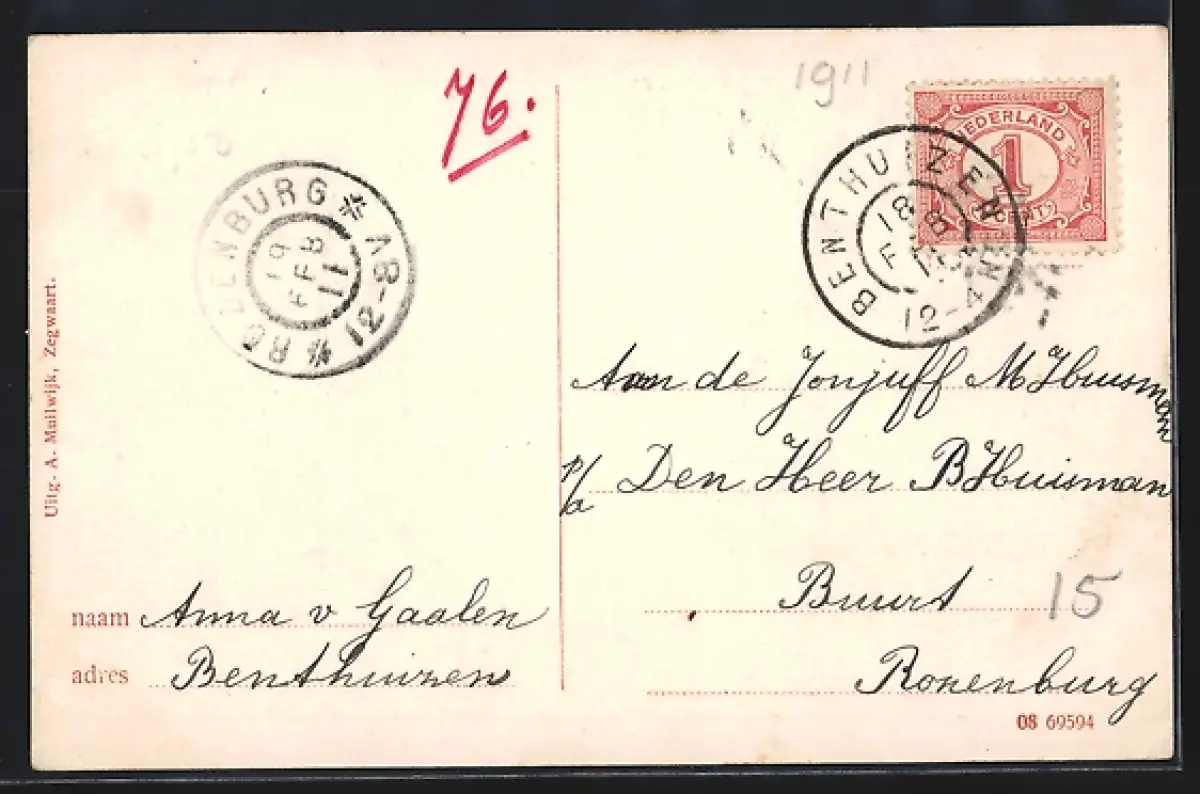 76.
1911
NEDERLAND
1
CENT
BENTHUIZEN
18 FEB 11
12-4N
ROZENBURG
19 FEB 11
12-8V
Uitg. A. Muilwijk, Zegwaart.
Aan de Jonjuff M Huisman
p/a Den Heer B Huisman
Buurt
15
Rozenburg
naam Anna v Gaalen
adres Benthuizen
08 69594